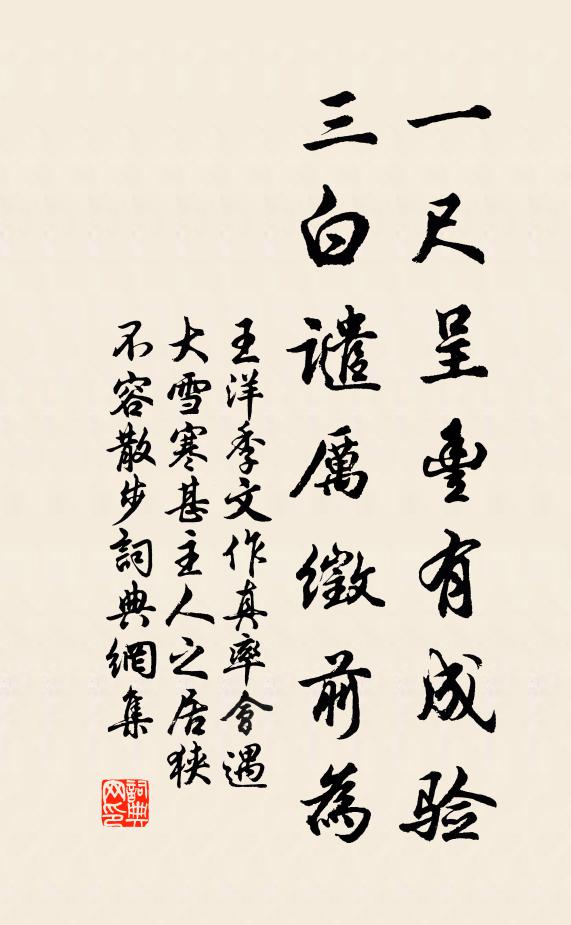 一尺呈豐有成验
三白譴厲徵前為
王洋季文作真率會遇
大雪寒甚主人之居狹
不容散步詞典網集
詞典
网印